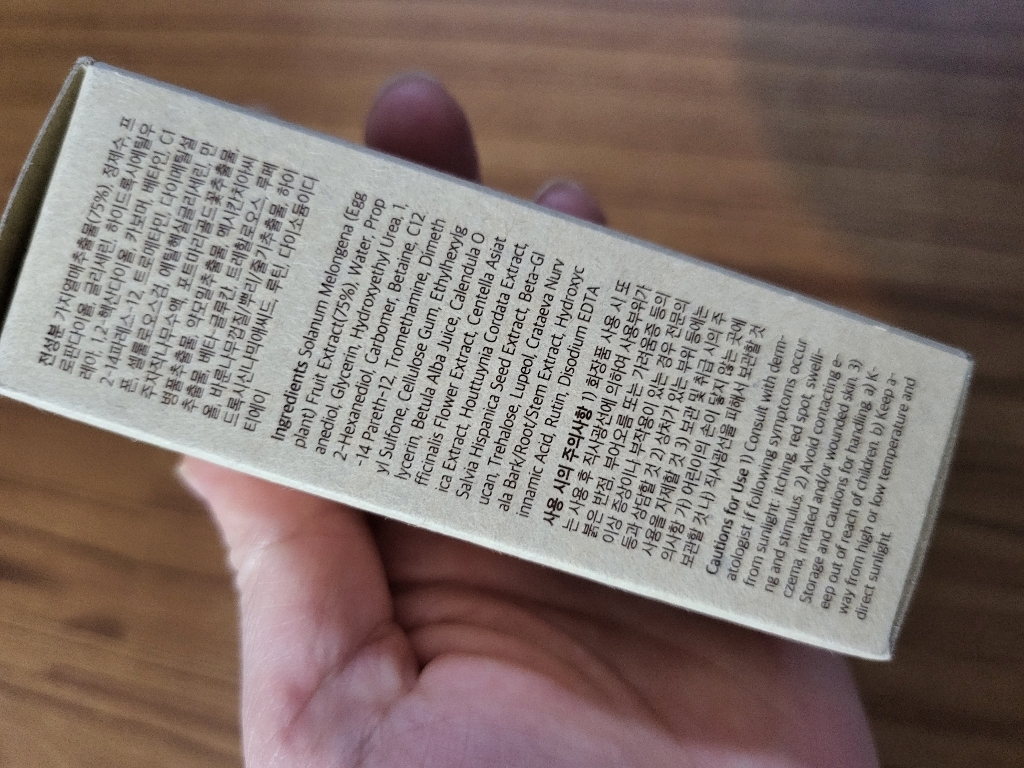 전성분 가지열매추출물(75%), 정제수, 프
로판다이올, 글리세린, 하이드록시에틸우
레아, 1,2-헥산다이올, 카보머, 베타인, C1
2-14파레스-12, 트로메타민, 다이메틸설
폰, 셀룰로오스검, 에틸헥실글리세린, 만
주자작나무수액, 포트마리골드꽃추출물,
병풀추출물, 약모밀추출물, 멕시칸치아씨
추출물, 베타-글루칸, 트레할로오스, 루페
올, 바룬나무껍질/뿌리/줄기추출물, 하이
드록시신나믹애씨드, 루틴, 다이소듐이디
티에이
Ingredients Solanum Melongena (Egg
plant) Fruit Extract(75%), Water, Prop
anediol, Glycerin, Hydroxyethyl Urea, 1,
2-Hexanediol, Carbomer, Betaine, C12
-14 Pareth-12, Tromethamine, Dimeth
yl Sulfone, Cellulose Gum, Ethylhexylg
lycerin, Betula Alba Juice, Calendula O
fficinalis Flower Extract, Centella Asiat
ica Extract, Houttuynia Cordata Extract,
Salvia Hispanica Seed Extract, Beta-Gl
ucan, Trehalose, Lupeol, Crataeva Nurv
ala Bark/Root/Stem Extract, Hydroxyc
innamic Acid, Rutin, Disodium EDTA
사용 시의 주의사항 1) 화장품 사용 시 또
는 사용 후 직사광선에 의하여 사용부위가
붉은 반점, 부어오름 또는 가려움증 등의
이상 증상이나 부작용이 있는 경우 전문의
등과 상담할 것 2) 상처가 있는 부위 등에는
사용을 자제할 것 3) 보관 및 취급 시의 주
의사항 가) 어린이의 손이 닿지 않는 곳에
보관할 것 나) 직사광선을 피해서 보관할 것
Cautions for Use 1) Consult with derm-
atologist if following symptoms occur
from sunlight: itching, red spot, swelli-
ng and stimulus. 2) Avoid contacting e-
czema, irritated and/or wounded skin. 3)
Storage and cautions for handling. a) K-
eep out of reach of children. b) Keep a-
way from high or low temperature and
direct sunlight.